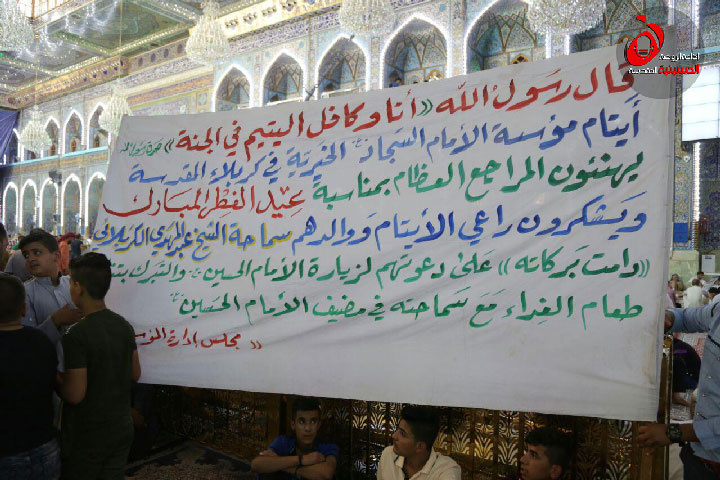 إذاعة الروضة
الحسينية المقدسة
قال رسول الله «أنا وكافل اليتيم في الجنة»
أيتام مؤسسة الأمام السجاد الخيرية في كربلاء المقدسة
يهنئون المراجع العظام بمناسبة عيد الفطر المبارك
ويشكرون راعي الأيتام ووالدهم سماحة الشيخ عبد المهدي الكربلائي
«دامت بركاته» على دعوتهم لزيارة الأمام الحسين والتبرك
طعام الغداء مع سماحته في مضيف الأمام الحسين
مجلس ادارة